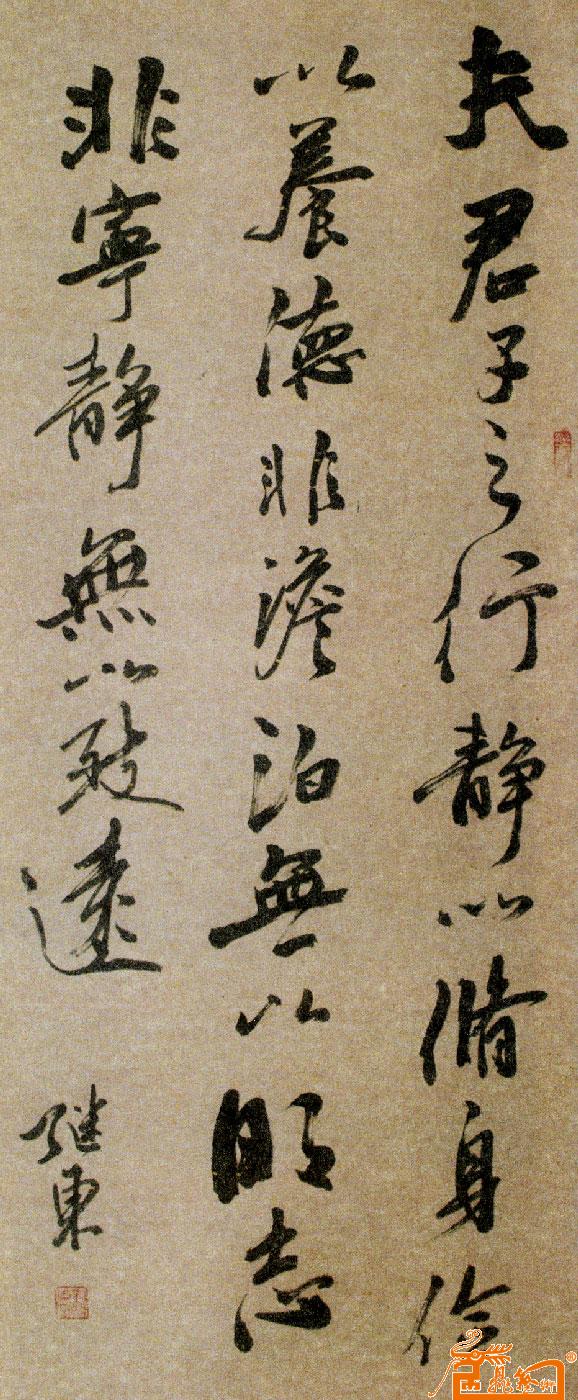 夫君子之行静以脩身俭
以養德非澹泊無以明志
非寧静無以致遠
继東